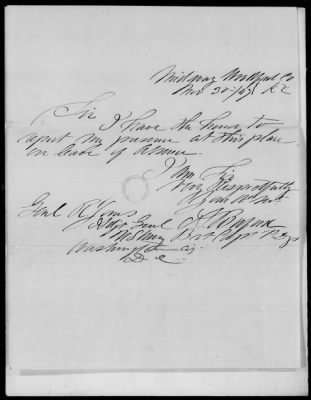 Midway Woodford Co
Nov 30th /47 KY
Sir
I have the honor to
report my presence at this place
on leave of absence
I Am Sir
Very Respectfully
Your Obt Svt
Genl R Jones
Adjt Genl
U S Army
Bvt Capt
Washington City
D. C.